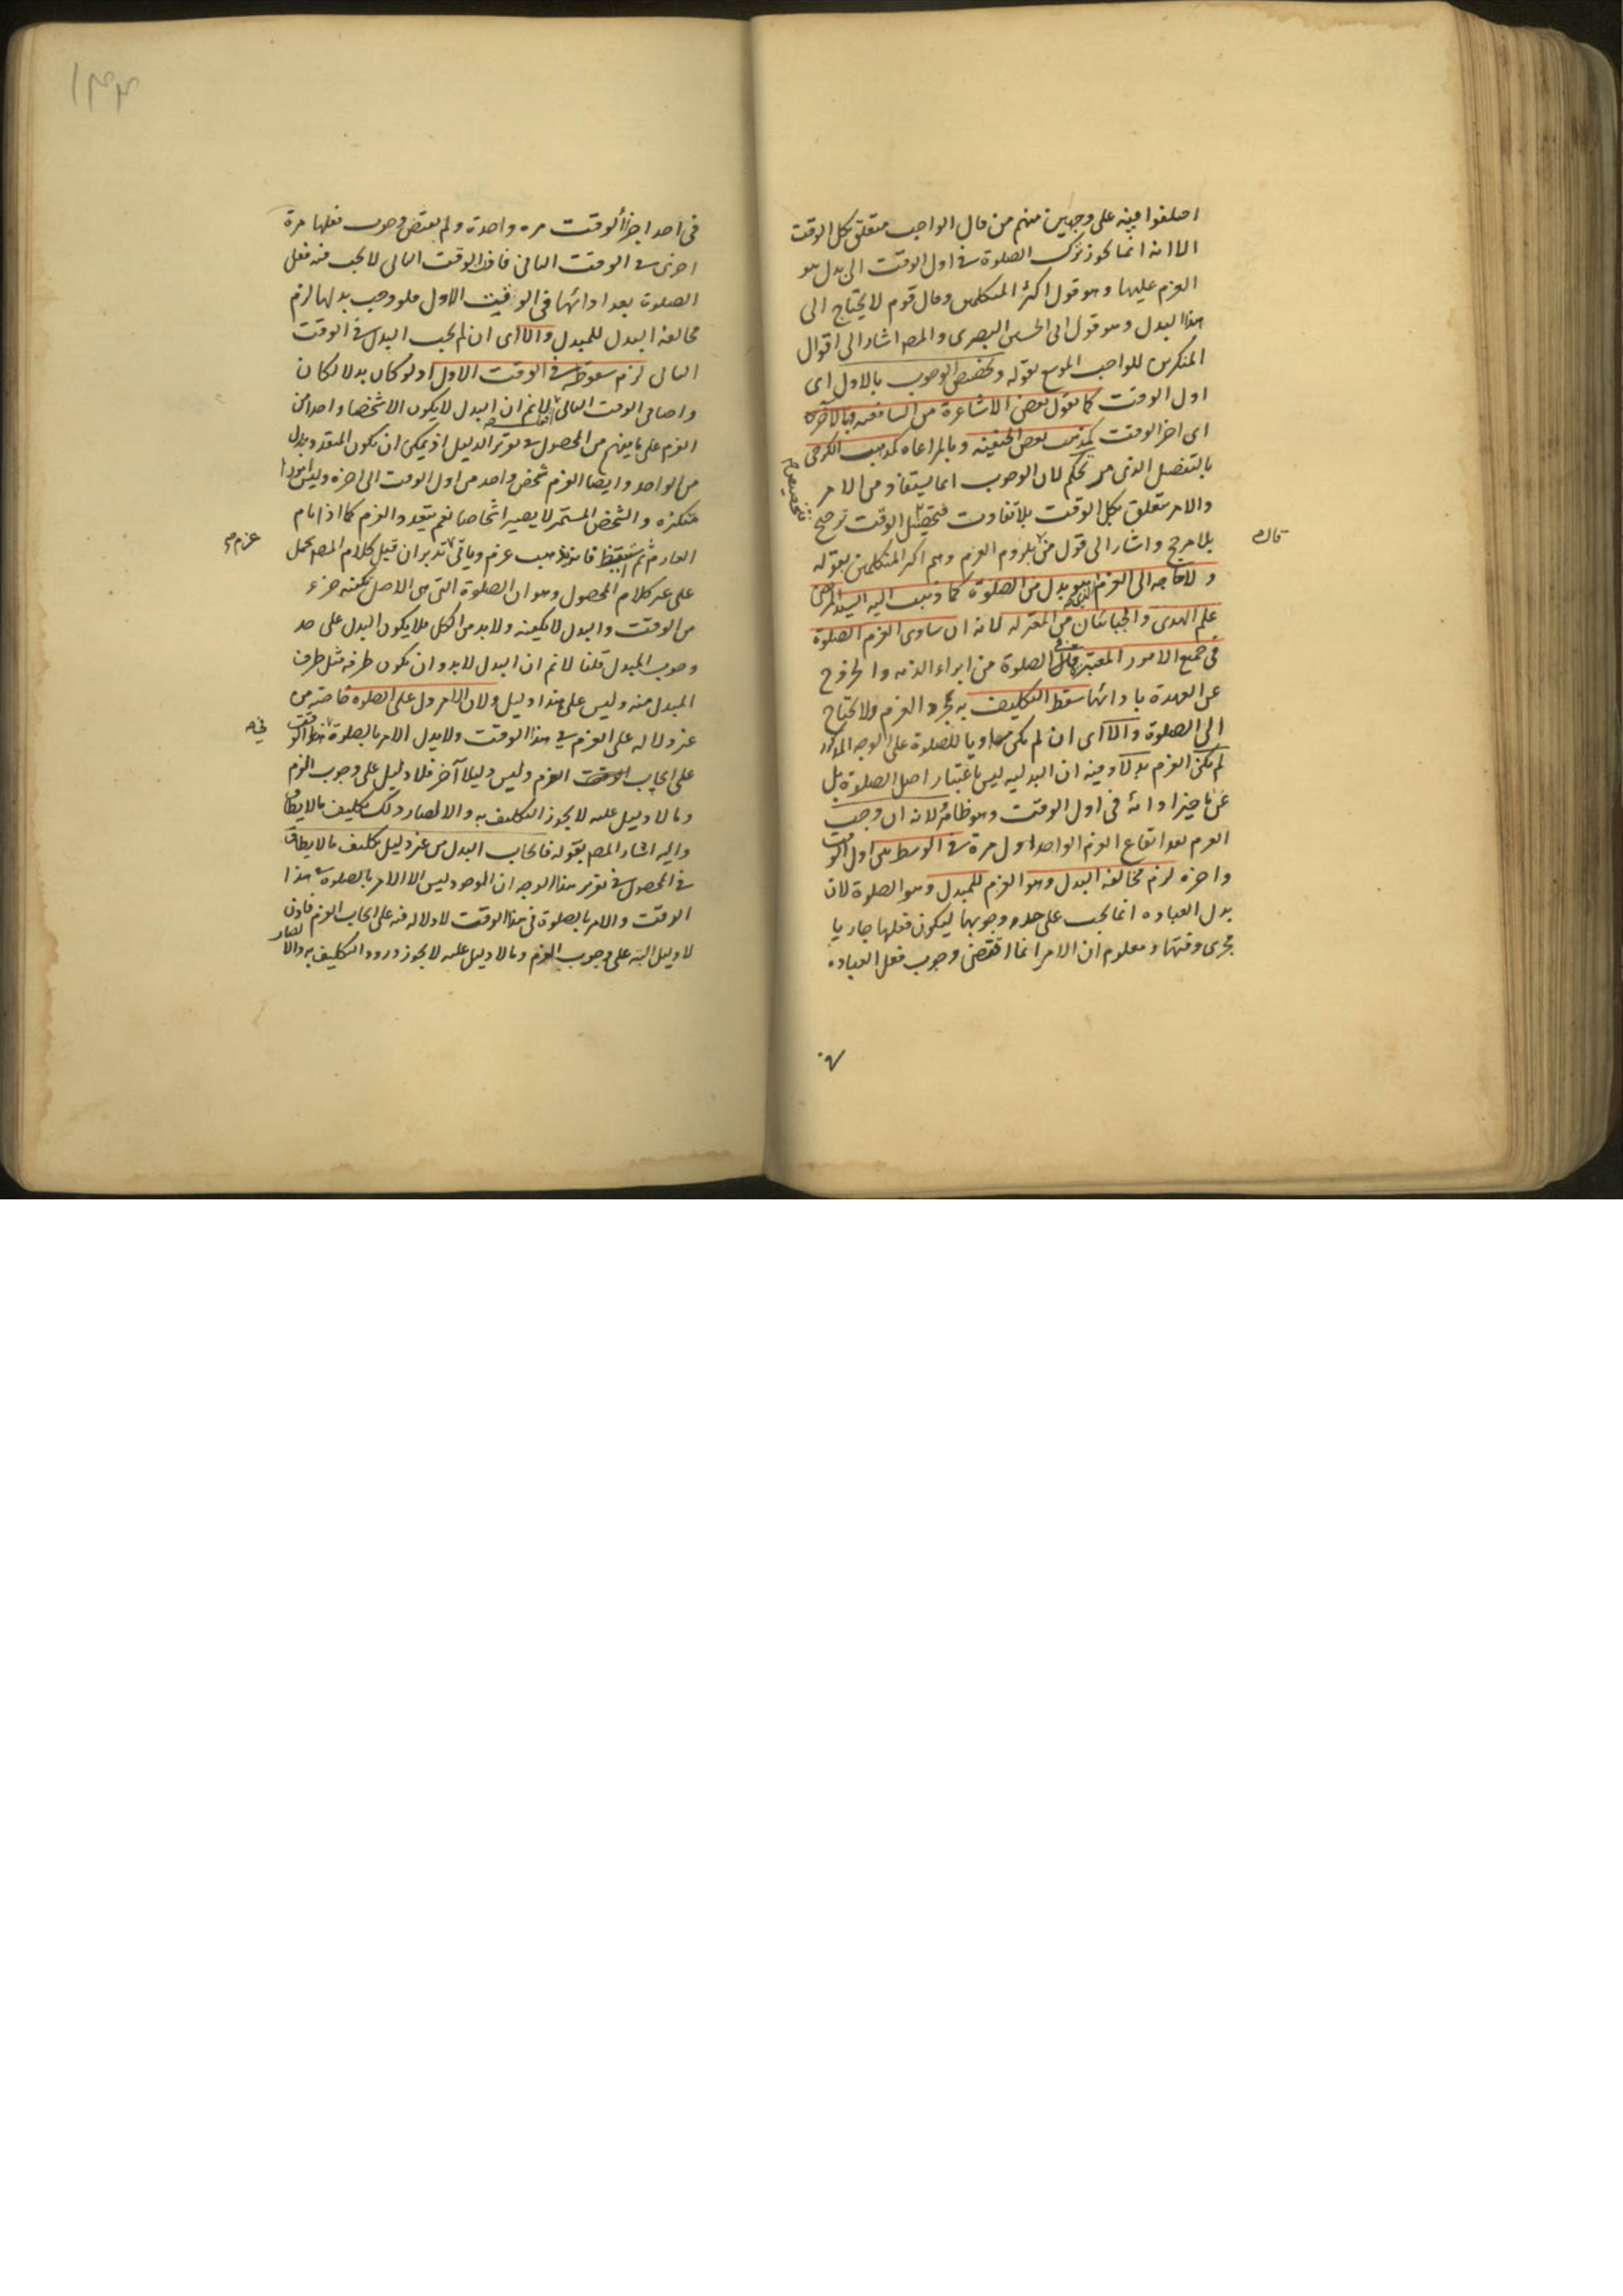 اختلفوا فيه على وجهين منهم من قال الواجب متعلق بكل الوقت
الا انه انما يجوز ترك الصلوة في اول الوقت الى بدل هو
العزم عليها وهو قول اكثر المتكلمين وقال قوم لا يحتاج الى
هذا البدل وهو قول ابى الحسين البصرى والمصـ اشار الى اقوال
المنكرين للواجب الموسع بقوله وتخصيص الوجوب بالاول اى
اول الوقت كما يقول بعض الاشاعرة من الشافعيه وبالآخر
اى اخر الوقت كمذهب بعض الحنفيه وبالمراعاه كمذهب الكرخى
بالتفصيل الذى مر تحكم لان الوجوب انما يستفاد من الامر
والامر متعلق بكل الوقت بلا تفاوت الوقت ترجيح
بلا مرجح واشار الى قول من بلزوم العزم وهم اكثر المتكلمين بقوله
قال
ولا حاجه الى العزم الذى هو بدل من الصلوة كما ذهب اليه السيد المرتضى
علم الهدى والجبائيان من المعتزله لانه ان ساوى العزم الصلوة
فى جميع الامور المعتبرة فى الصلوة من ابراء الذمه والخروج
عن العهدة بادائها سقط التكليف به بمجرد العزم ولا يحتاج
الى الصلوة والا اى ان لم يكن مساويا للصلوة على الوجه المذكور
لم يكن العزم بدلا وفيه ان البدليه ليس باعتبار اصل الصلوة بل
عن تاخير ادائه فى اول الوقت وهو ظاهر ولانه ان وجب
العزم بعد ايقاع العزم الواحد اول مرة في الوسط بين اول الوقت
واخره لزم مخالفه البدل وهو العزم للمبدل وهو الصلوة لان
بدل العباده انما يجب على حد وجوبها ليكون فعلها جاريا
مجرى وقتها ومعلوم ان الامر انما اقتضى وجوب فعل العباده
فى احد اجزاء الوقت مرة واحدة ولم يقتض وجوب فعلها مرة
اخرى في الوقت الثانى فاذن الوقت الثانى لا يجب فيه فعل
الصلوة بعد ادائها فى الوقت الاول فلو وجب بدلها لزم
مخالفة البدل للمبدل والا اى ان لم يجب البدل في الوقت
الثانى لزم سقوطه في الوقت الاول اذ لو كان بدلا لكان
واجبا فى الوقت الثانى لا نم ان البدل لا يكون الا شخصا واحدا من
العزم على ما يفهم من المحصول في تقرير الدليل اذ يمكن ان يكون المتعدد بدل
من الواحد وايضا العزم شخص واحد من اول الوقت الى اخره وليس امورا
متكثره والشخص المستمر لا يصير اشخاصا نعم يتعدد العزم كما اذا نام
العازم ثم استيقظ فانه يذهب عزم وياتى تدبر ان قيل كلام المصـ يحمل
عزم
على غير كلام المحصول وهو ان الصلوة التى هى الاصل يكفيه جزء
من الوقت والبدل لا يكفيه ولا بد من الكل فلا يكون البدل على حد
وجوب المبدل قلنا لا نم ان البدل لا بد وان يكون ظرفه مثل ظرف
المبدل منه وليس على هذا دليل ولان الامر دل على الصلوة خاصة من
غير دلاله على العزم في هذا الوقت ولا يدل الامر بالصلوة هذا الوقت
فى
على ايجاب العزم وليس دليلا آخر فلا دليل على وجوب العزم
وما لا دليل عليه لا يجوز التكليف به والا لصار ذلك تكليف ما لا يطاق
واليه اشار المصـ بقوله فايجاب البدل من غير دليل تكليف ما لا يطاق
في المحصول في تقرير هذا الوجه ان الموجود ليس الا الامر بالصلوة في هذا
الوقت والامر بالصلوة فى هذا الوقت لا دلاله فيه على ايجاب العزم فاذن
لا دليل البته على وجوب العزم وما لا دليل عليه لا يجوز ورود التكليف به والا لصار